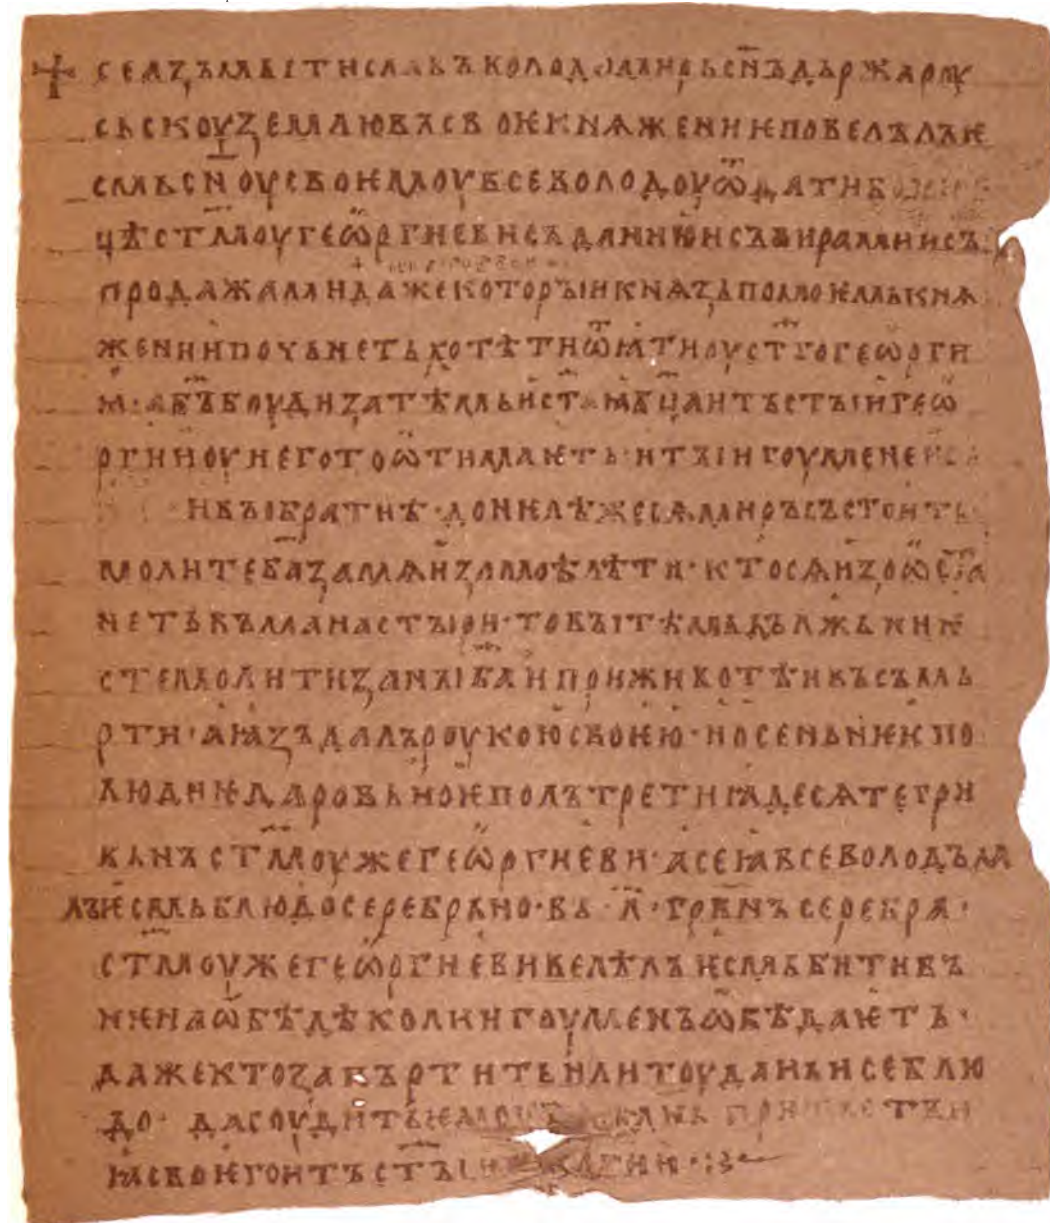 + се азъ мьстиславъ володимирь с҃нъ дьржа роу
сьскоу землю въ своѥ кнѧжениѥ повелѣлъ ѥ
смь с҃ноу своѥмоу всеволодоу ѿдати
цѣ ст҃моу геѡргиеви съ данию и съ вирами и съ
продажами даже которыи кнѧзь по моѥмь кнѧ
жении почьнеть хотѣти ѿѩти оу ст҃го геѡрги
ꙗ · а б҃ъ боуди за тѣмь и ст҃аꙗ б҃ца и тъ ст҃ыи геѡ
ргии оу него то ѿтимаѥть · и ты игоумене
и вы братиѣ · донелѣ же сѧ миръ състоить ·
молите б҃а за мѧ и за моѣ дѣти · кто сѧ изоѡстa
неть въ манастыри · то вы тѣмь дължьни ѥ
сте молити за ны б҃а и при животѣ и въ съмь
рти · а ꙗзъ далъ роукою своѥю · и осеньнѥѥ по
людиѥ даровьноѥ полътретиꙗдесѧте гри
вьнъ ст҃моу же геѡргиеви · а се ꙗ всеволодъ да
лъ ѥсмь блюдо серебрьно · въ · л҃ · грвн҃ъ серебра ·
ст҃моу же геѡргиеви велѣлъ ѥсмь бити въ
нѥ на ѡбѣдѣ коли игоуменъ ѡбѣдаѥть ·
даже кто запъртить или тоу дань и се блю
до · да соудить ѥмоу пришьстви
ꙗ своѥго и тъ ст҃ыи геѡргии